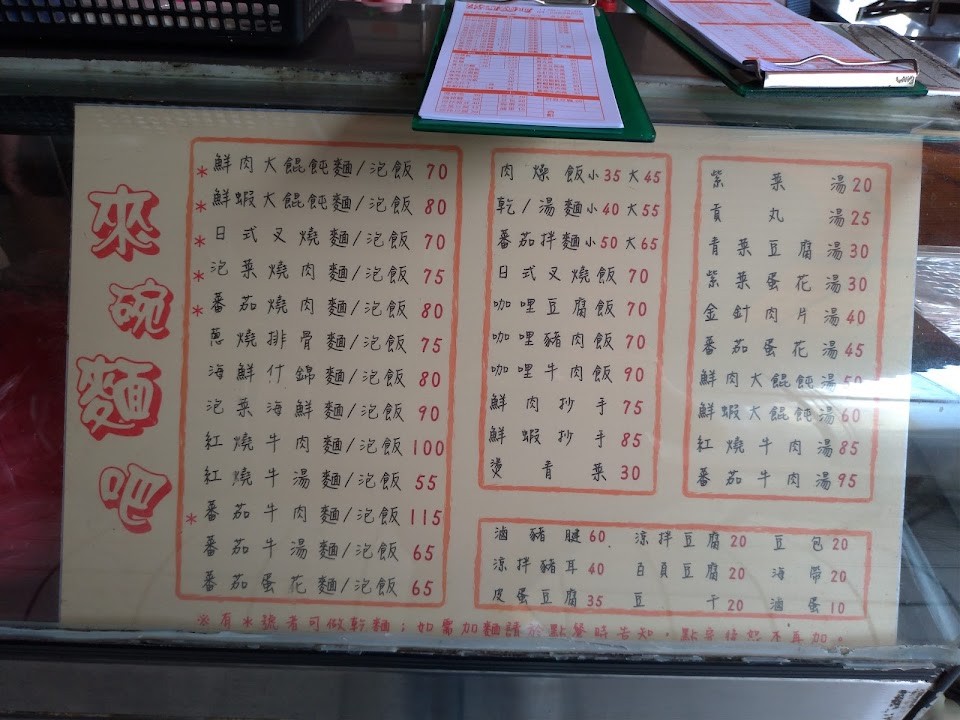 來碗麵吧
*鮮肉大餛飩麵/泡飯 70
*鮮蝦大餛飩麵/泡飯 80
*日式叉燒麵/泡飯 70
*泡菜燒肉麵/泡飯 75
*蕃茄燒肉麵/泡飯 80
蔥燒排骨麵/泡飯 75
海鮮什錦麵/泡飯 80
泡菜海鮮麵/泡飯 90
紅燒牛肉麵/泡飯 100
紅燒牛湯麵/泡飯 55
*蕃茄牛肉麵/泡飯 115
蕃茄牛湯麵/泡飯 65
蕃茄蛋花麵/泡飯 65
肉燥飯小35大45
乾/湯麵小40大55
蕃茄拌麵小50大65
日式叉燒飯 70
咖哩豆腐飯 70
咖哩豬肉飯 70
咖哩牛肉飯 90
鮮肉抄手 75
鮮蝦抄手 85
燙青菜 30
紫菜湯 20
貢丸湯 25
青菜豆腐湯 30
紫菜蛋花湯 30
金針肉片湯 40
蕃茄蛋花湯 45
鮮肉大餛飩湯 50
鮮蝦大餛飩湯 60
紅燒牛肉湯 85
蕃茄牛肉湯 95
滷豬腱 60 涼拌豆腐 20 豆包 20
涼拌豬耳 40 百頁豆腐 20 海帶 20
皮蛋豆腐 35 豆干 20 滷蛋 10
※有*號者可做乾麵;如需加麵請於點餐時告知,點完後恕不再加。